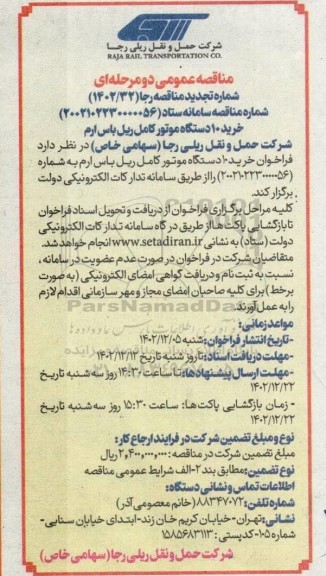 شرکت حمل و نقل ریلی رجا
RAJA RAIL TRANSPORTATION CO.
مناقصه عمومی دو مرحله‌ای
شماره تجدید مناقصه رجا (۱۴۰۲/۳۲)
شماره مناقصه سامانه ستاد (۲۰۰۲۱۰۲۲۳۰۰۰۰۰۵۶)
خرید ۱۰ دستگاه موتور کامل ریل باس ارم
شرکت حمل و نقل ریلی رجا (سهامی خاص) در نظر دارد
فراخوان خرید ۱۰ دستگاه موتور کامل ریل باس ارم به شماره
(۲۰۰۲۱۰۲۲۳۰۰۰۰۰۵۶) را از طریق سامانه تدارکات الکترونیکی دولت
برگزار کند.
کلیه مراحل برگزاری فراخوان از دریافت و تحویل اسناد فراخوان
تا بازگشایی پاکت‌ها از طریق درگاه سامانه تدارکات الکترونیکی
دولت (ستاد) به نشانی www.setadiran.ir انجام خواهد شد.
متقاضیان شرکت در فراخوان در صورت عدم عضویت در سامانه،
نسبت به ثبت نام و دریافت گواهی امضای الکترونیکی (به صورت
برخط) برای کلیه صاحبان امضای مجاز و مهر سازمانی اقدام لازم
را به عمل آورند.
مواعد زمانی:
-تاریخ انتشار فراخوان: شنبه ۱۴۰۲/۱۲/۰۵
-مهلت دریافت اسناد: تا روز شنبه تاریخ ۱۴۰۲/۱۲/۱۲
-مهلت ارسال پیشنهادها: تا ساعت ۱۴:۳۰ روز سه‌شنبه تاریخ
۱۴۰۲/۱۲/۲۲
- زمان بازگشایی پاکت‌ها: ساعت ۱۵:۳۰ روز سه‌شنبه تاریخ
۱۴۰۲/۱۲/۲۲
نوع و مبلغ تضمین شرکت در فرایند ارجاع کار:
مبلغ تضمین شرکت در مناقصه: ۲,۴۰۰,۰۰۰,۰۰۰ ریال
نوع تضمین: مطابق بند ۲-الف شرایط عمومی مناقصه
اطلاعات تماس و نشانی دستگاه:
شماره تلفن: ۸۸۳۴۷۰۷۲ (خانم معصومی آذر)
نشانی: تهران-خیابان کریم خان زند-ابتدای خیابان سنایی-
شماره ۱۰۵-کدپستی: ۱۵۸۵۶۸۳۱۱۳
شرکت حمل و نقل ریلی رجا (سهامی خاص)